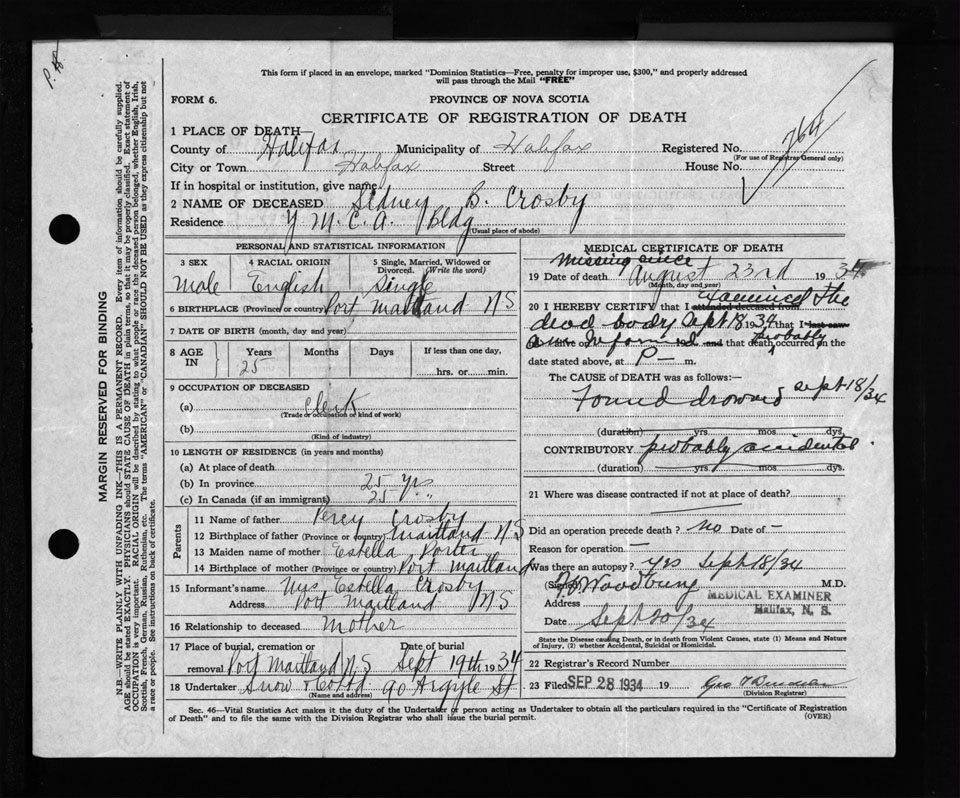 P.
This form if placed in an envelope, marked "Dominion Statistics—Free, penalty for improper use, $300," and properly addressed
will pass through the Mail "FREE"
FORM 6.
PROVINCE OF NOVA SCOTIA
CERTIFICATE OF REGISTRATION OF DEATH
1 PLACE OF DEATH—
County of Halifax Municipality of Halifax Registered No. 764
(For use of Registrar General only)
City or Town Halifax Street House No.
If in hospital or institution, give name
2 NAME OF DECEASED Sidney B. Crosby
Residence Y M.C.A. Bldg
(Usual place of abode)
PERSONAL AND STATISTICAL INFORMATION
3 SEX Male
4 RACIAL ORIGIN English
5 Single, Married, Widowed or Divorced. (Write the word) Single
6 BIRTHPLACE (Province or country) Port Maitland NS
7 DATE OF BIRTH (month, day and year)
8 AGE IN Years 25 Months Days If less than one day, hrs. or min.
9 OCCUPATION OF DECEASED
(a) Clerk
(Trade occupation or kind of work)
(b)
(Kind of industry)
10 LENGTH OF RESIDENCE (in years and months)
(a) At place of death
(b) In province 25 yrs
(c) In Canada (if an immigrant) 25 "
Parents
11 Name of father Percy Crosby
12 Birthplace of father (Province or country) Maitland NS
13 Maiden name of mother Estella Porter
14 Birthplace of mother (Province or country) Port Maitland
15 Informant's name Mrs Estella Crosby
Address Port Maitland NS
16 Relationship to deceased Mother
17 Place of burial, cremation or removal Port Maitland NS Date of burial Sept 19th 1934
18 Undertaker Snow & Co Ltd 90 Argyle St
(Name and address)
MEDICAL CERTIFICATE OF DEATH
Missing since
19 Date of death August 23rd 1934
(Month, day and year)
20 I HEREBY CERTIFY that I attended deceased from examined the
dead body Sept 18 1934, that I last saw
alive on Informed 19 and that death probably occurred on the
date stated above, at P— m.
The CAUSE of DEATH was as follows:—
Found drowned Sept 18/34
(duration) yrs. mos. dys.
CONTRIBUTORY probably accidental.
(duration) yrs. mos. dys.
21 Where was disease contracted if not at place of death?
Did an operation precede death? no Date of —
Reason for operation —
Was there an autopsy? yes Sept 18/34
(Signed) Woodbury M.D.
Address MEDICAL EXAMINER
Halifax, N. S.
Date Sept 20/34
State the Disease causing Death, or in death from Violent Causes, state (1) Means and Nature
of Injury, (2) whether Accidental, Suicidal or Homicidal.
22 Registrar's Record Number
23 Filed SEP 28 1934 19 Geo
(Division Registrar)
Sec. 46—Vital Statistics Act makes it the duty of the Undertaker or person acting as Undertaker to obtain all the particulars required in the "Certificate of Registration
of Death" and to file the same with the Division Registrar who shall issue the burial permit.
(OVER)
MARGIN RESERVED FOR BINDING
N.B.—WRITE PLAINLY WITH UNFADING INK—THIS IS A PERMANENT RECORD. Every item of information should be carefully supplied.
AGE should be stated EXACTLY. PHYSICIANS should STATE CAUSE OF DEATH in plain terms, so that it may be properly classified. Exact statement of
OCCUPATION is very important. RACIAL ORIGIN will be described by stating to what people or race the deceased person belonged, whether English, Irish,
Scottish, French, German, Russian, Ruthenian, etc. The terms "AMERICAN" or "CANADIAN" SHOULD NOT BE USED as they express citizenship but not
a race or people. See instructions on back of certificate.